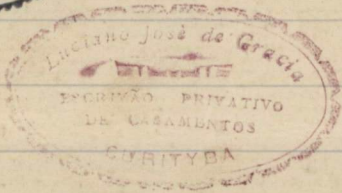 Luciano José de Gracia
ESCRIVÃO PRIVATIVO
DE CASAMENTOS
CURITYBA